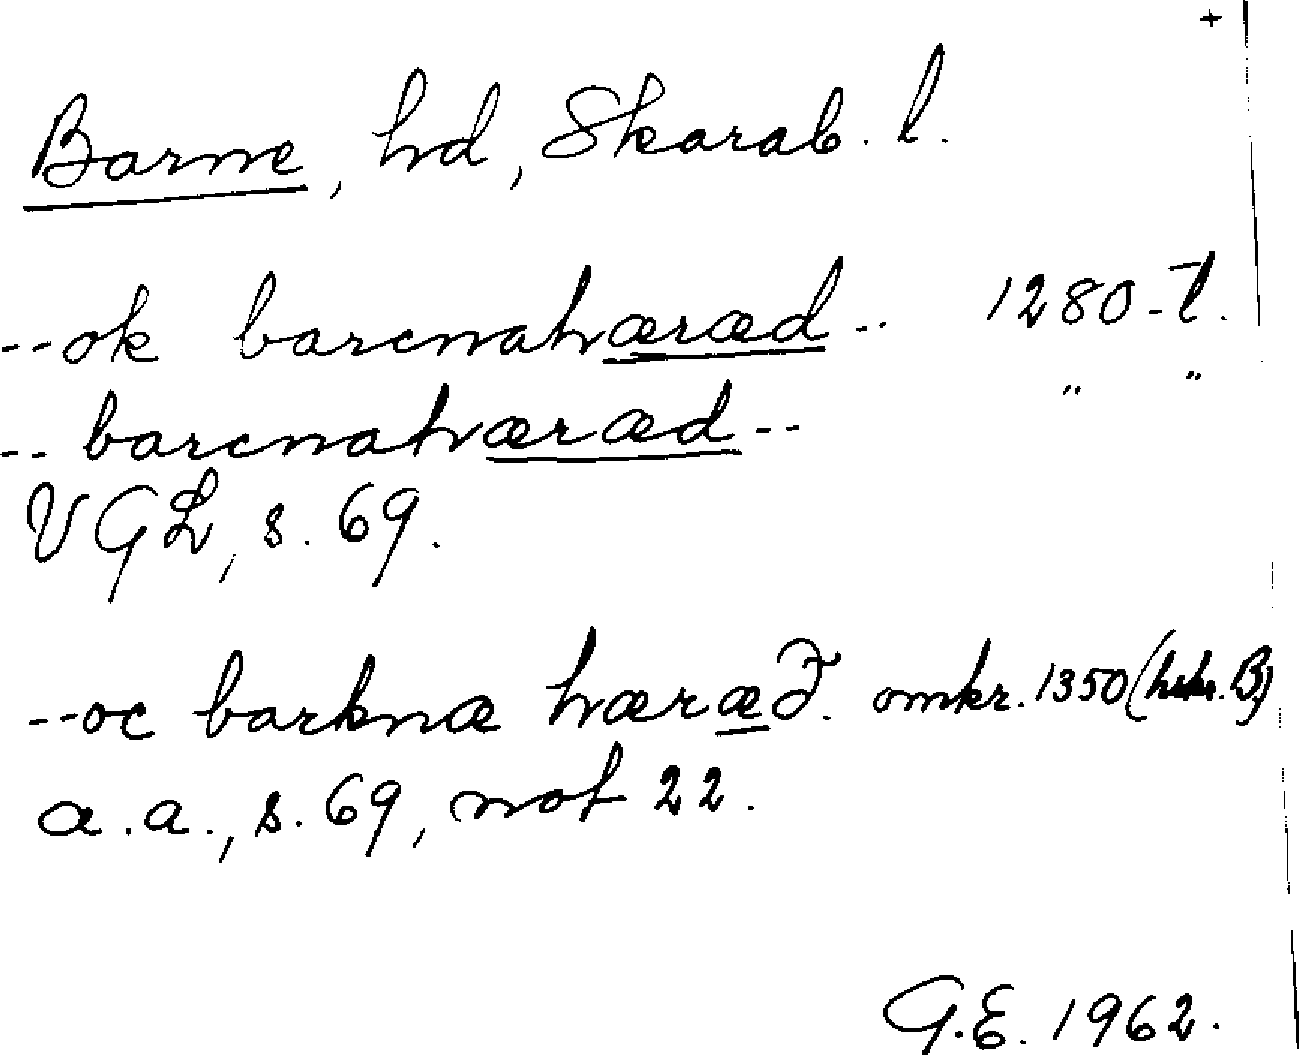 +
Barne, hd, Skarab. l.
--ok barcnahæræd-- 1280-t.
--barcnahæræd-- " "
VGL, s. 69.
--oc barknæ hæræð. omkr. 1350 (hskr. B)
a.a., s. 69, not 22.
G.E. 1962.